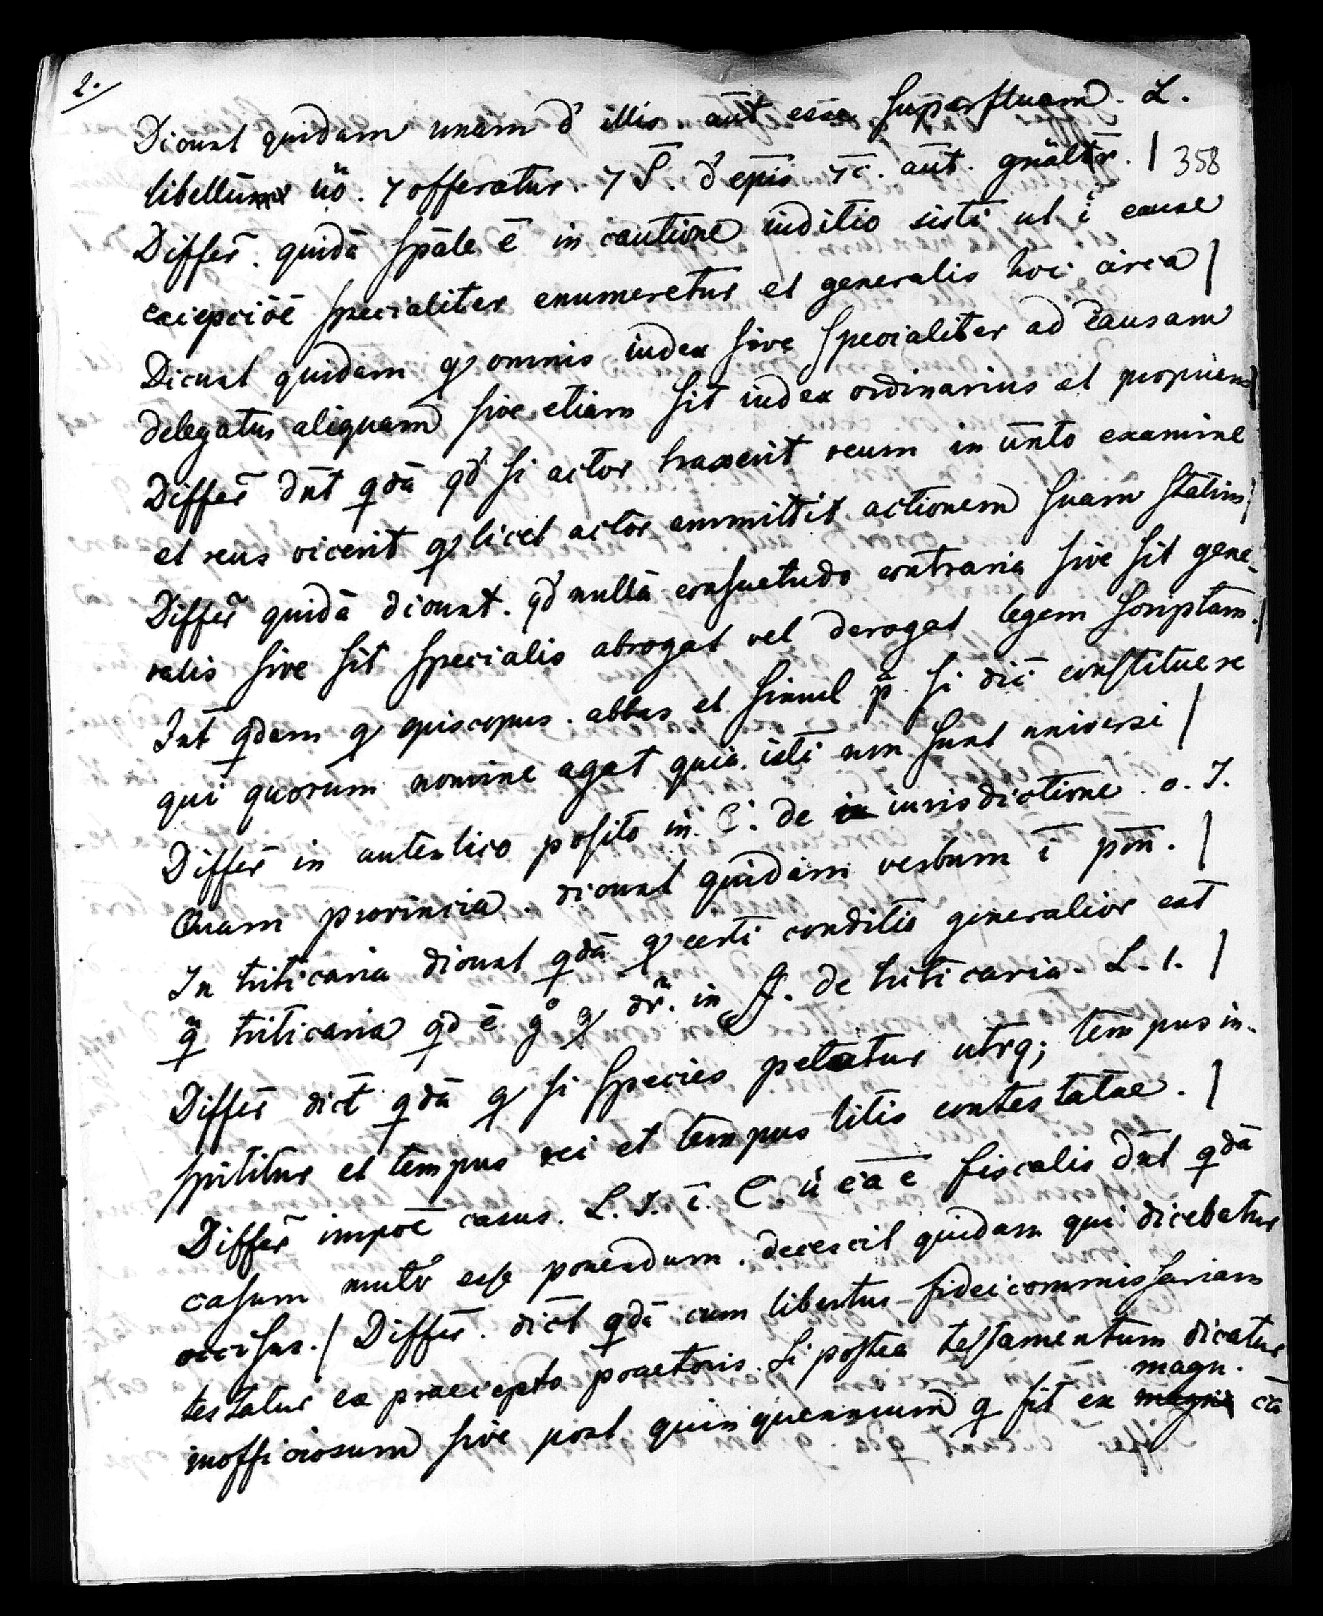 2.
Dicunt quidam unam d' illis. aūt esse superfluam. L.
libellūm ūo. 7 offeratur. 7 S̄. d' epīs 7c̄. aūt. gn̄altr̄. | 358
Differ̄. quidā spāle ē in cautione iuditio sisti ut ī cause
excepciōē specialiter enumeretur et generalis hoc circa |
Dicunt quidam q omnis iudex sive specialiter ad causam
delegatus aliquam sive etiam sit iudex ordinarius et
Differ̄ dn̄t qdā qd' si actor traxerit reum in examine
et reus vicerit q licet actor ammittit actionem suam statim |
Differ̄ quidā dicunt. qd' nullā consuetudo contraria sive sit gene-
ralis sive sit specialis abrogat vel derogat legem scriptam. |
Int̄ qdam q episcopus. abbas et simul p̄. si dic̄ constituere
qui quorum nomine agat quia isti non sunt universi |
Differ̄ in autentico posito in. C. de in iurisdictione. o. J.
Quam provincia. dicunt quidam verbum ī pōn̄. |
In triticaria dicunt qdā q certi conditio generalior est
q̄ triticaria qd ē g° q dr̄. in ff. de triticaria. L. 1. |
Differ̄ dict̄ qdā q si species petatur utrq; tempus in-
spititur et tempus rei et tempus litis contestatae. |
Differ̄ impōē casus. L. J. ī. C. ū ēa ē fiscalis dn̄t qdā
casum mutr̄ esse ponendum. decescit quidam qui dicebatur
occisus. | Differ̄. dict̄ qdā cum libertus fideicommissariam
testatur ex praecepto praetoris. Si postea testamentum dicatur
inofficiosum sive post quinquennium q sit ex magn. cā